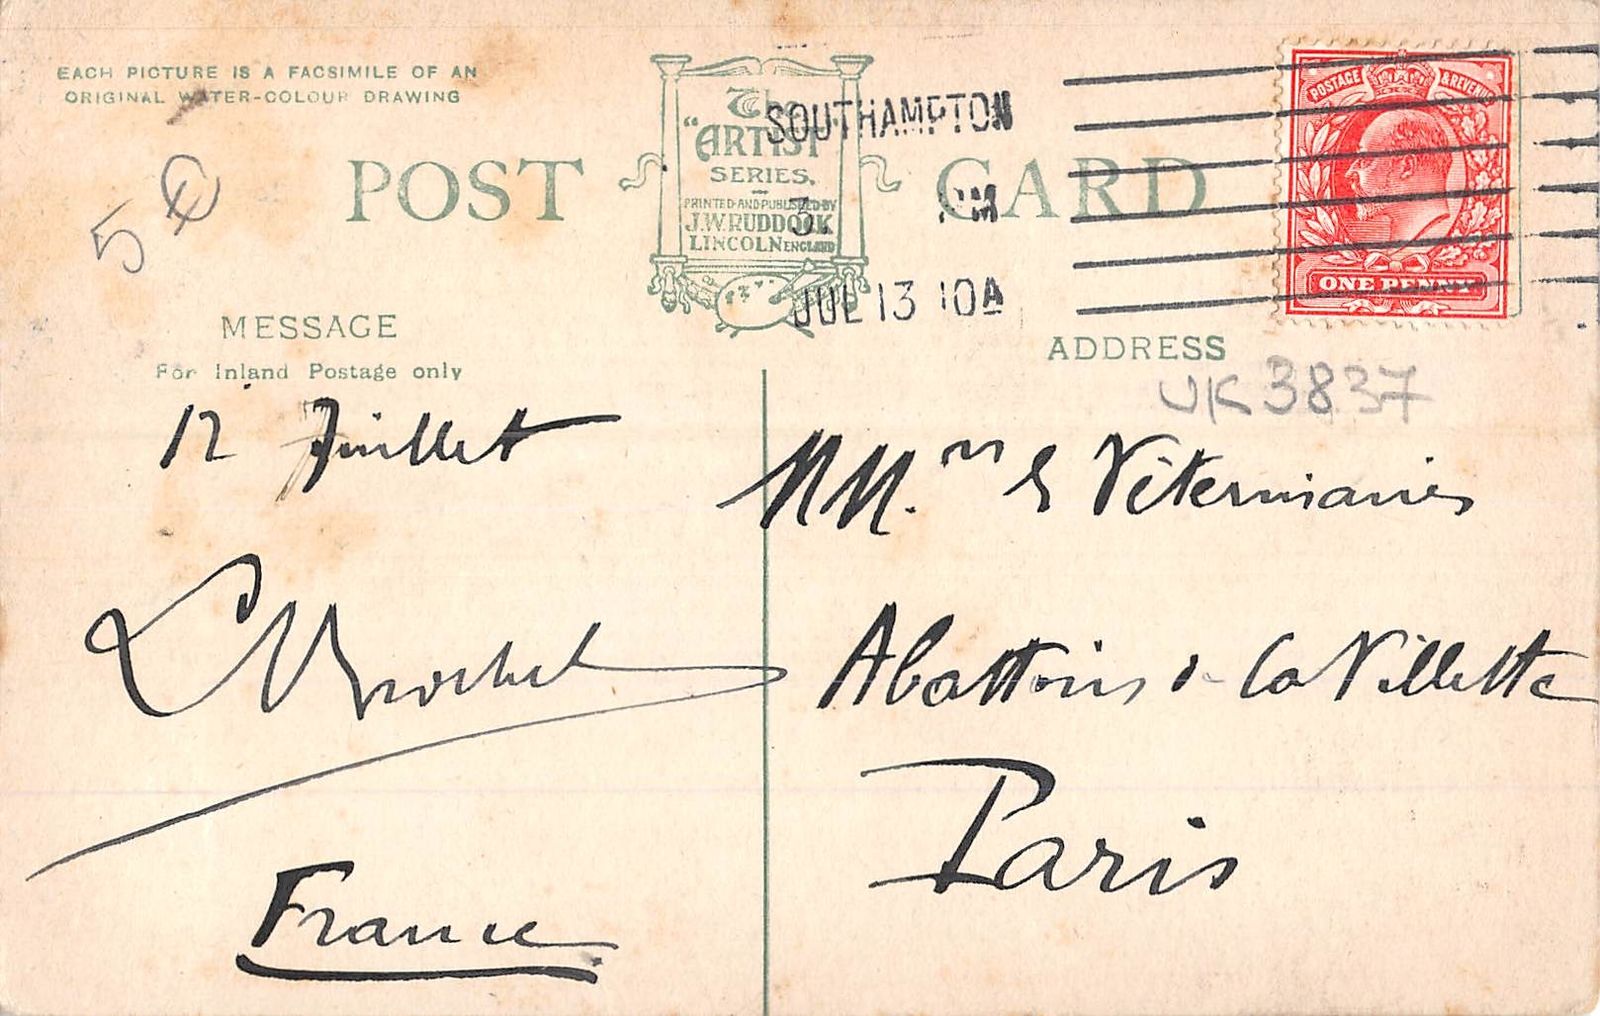 EACH PICTURE IS A FACSIMILE OF AN
ORIGINAL WATER-COLOUR DRAWING
POST CARD
The
"ARTIST"
SERIES.
PRINTED AND PUBLISHED BY
J.W. RUDDOCK
LINCOLN ENGLAND
SOUTHAMPTON
3. PM
JUL 13 10A
POSTAGE & REVENUE
ONE PENNY
5 €
MESSAGE
For Inland Postage only
ADDRESS
UK3837
12 Juillet
France
MM. rs les Véterinaires
Abattoirs de La Villette
Paris